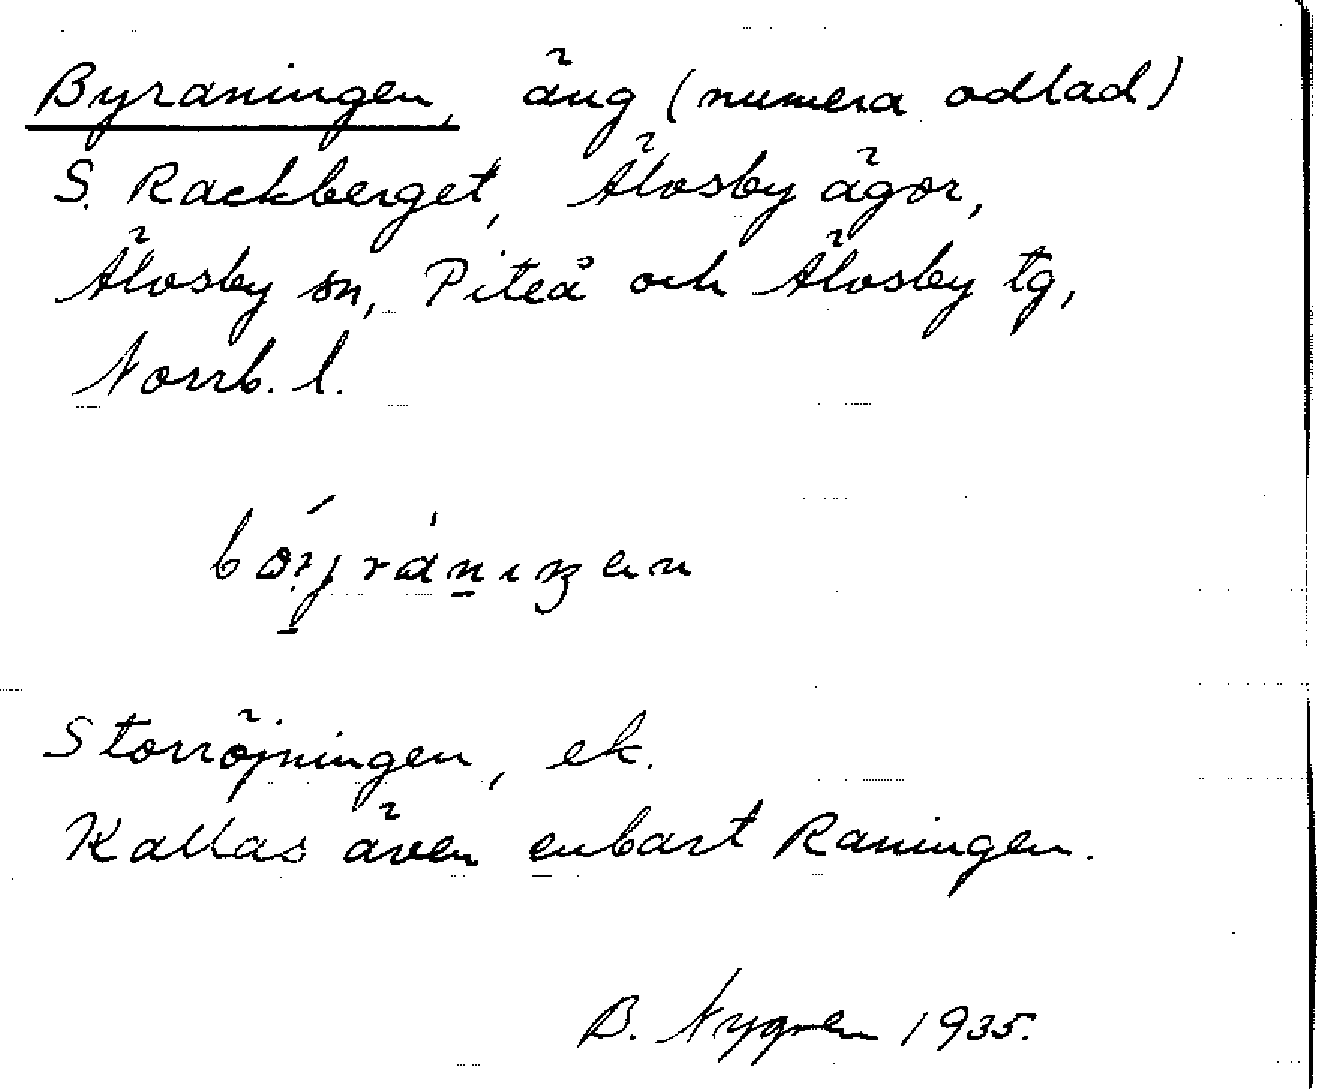 Byraningen, äng (numera odlad)
S. Rackberget, Älvsby ägor,
Älvsby sn, Piteå och Älvsby tg,
Norrb. l.
Storröjningen, ek.
Kallas även enbart Raningen.
B. Nygren 1935.